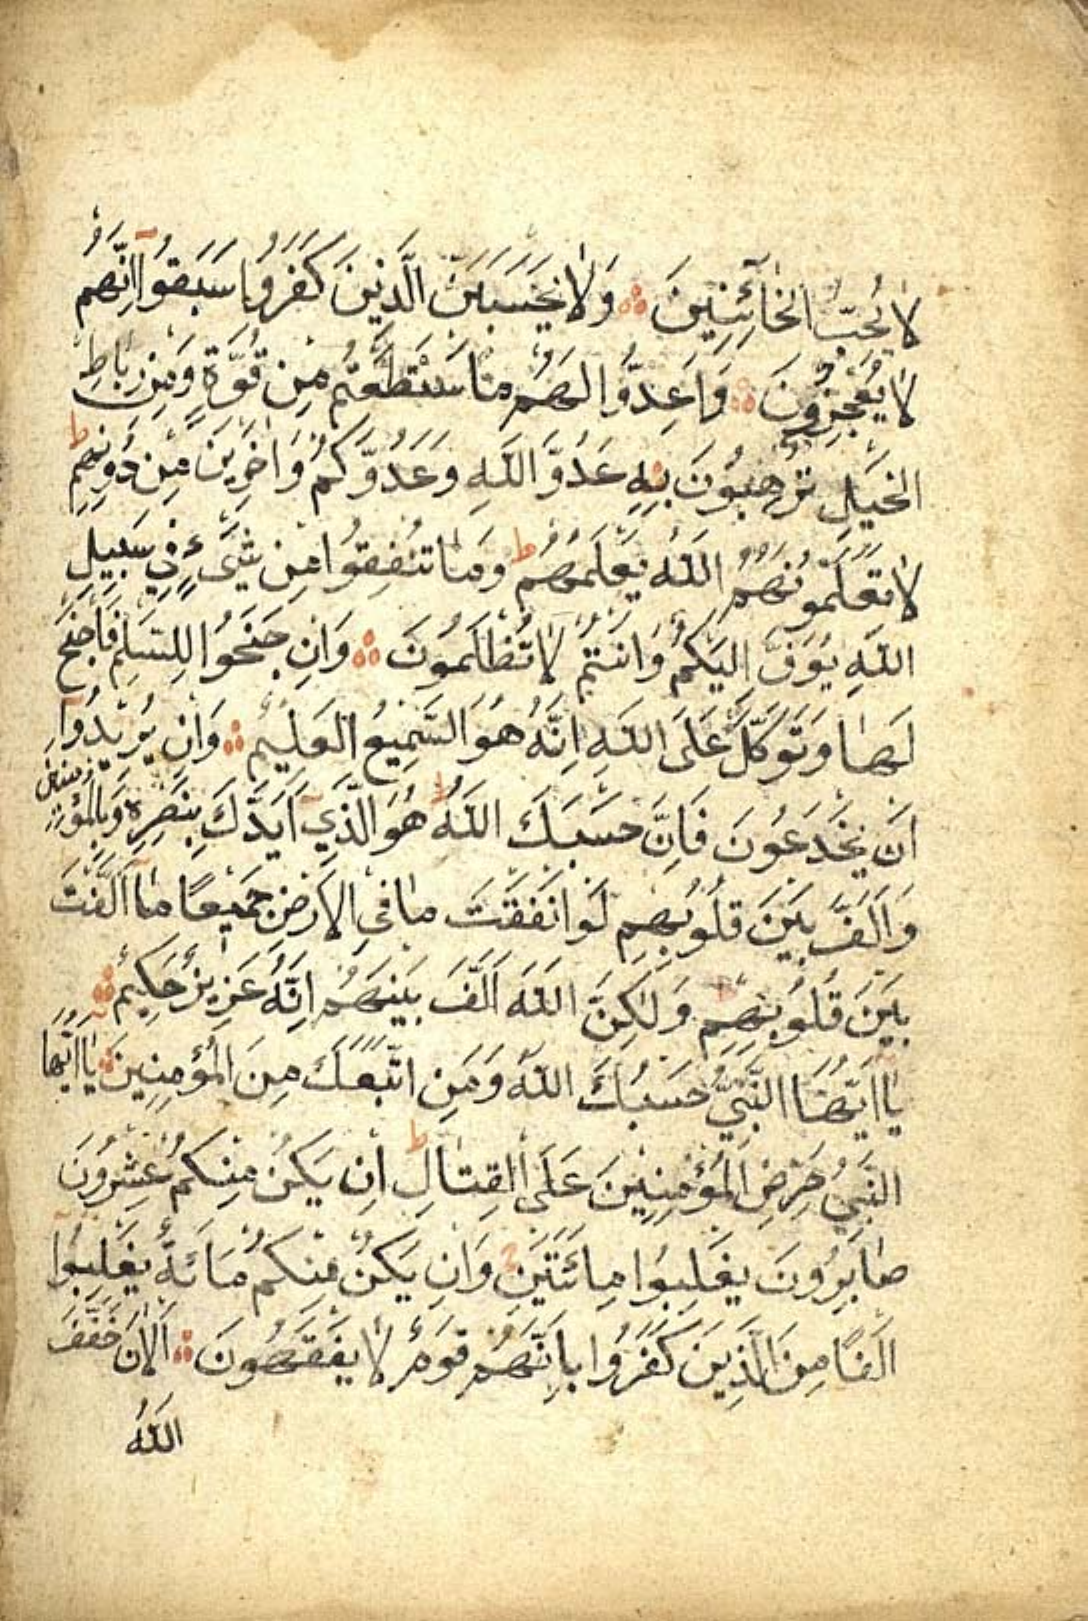 لَا يُحِبُّ الْخَآئِنِينَ ۞ وَلَا يَحْسَبَنَّ الَّذِينَ كَفَرُوا سَبَقُوٓا اِنَّهُمْ
لَا يُعْجِزُونَ ۞ وَاَعِدُّوا لَهُمْ مَا اسْتَطَعْتُمْ مِنْ قُوَّةٍ وَمِنْ رِبَاطِ
الْخَيْلِ تُرْهِبُونَ بِهِ عَدُوَّ اللّٰهِ وَعَدُوَّكُمْ وَاٰخَرِينَ مِنْ دُونِهِمْ ط
لَا تَعْلَمُونَهُمْ اَللّٰهُ يَعْلَمُهُمْ ط وَمَا تُنْفِقُوا مِنْ شَىْءٍ فِى سَبِيلِ
اللّٰهِ يُوَفَّ اِلَيْكُمْ وَاَنْتُمْ لَا تُظْلَمُونَ ۞ وَاِنْ جَنَحُوا لِلسَّلْمِ فَاجْنَحْ
لَهَا وَتَوَكَّلْ عَلَى اللّٰهِ اِنَّهُ هُوَ السَّمِيعُ الْعَلِيمُ ۞ وَاِنْ يُرِيدُوٓا
اَنْ يَخْدَعُوكَ فَاِنَّ حَسْبَكَ اللّٰهُ ط هُوَ الَّذِىٓ اَيَّدَكَ بِنَصْرِهِ وَبِالْمُؤْمِنِينَ
وَاَلَّفَ بَيْنَ قُلُوبِهِمْ لَوْ اَنْفَقْتَ مَا فِى الْاَرْضِ جَمِيعًا مَٓا اَلَّفْتَ
بَيْنَ قُلُوبِهِمْ وَلٰكِنَّ اللّٰهَ اَلَّفَ بَيْنَهُمْ اِنَّهُ عَزِيزٌ حَكِيمٌ ۞
يَٓا اَيُّهَا النَّبِىُّ حَسْبُكَ اللّٰهُ وَمَنِ اتَّبَعَكَ مِنَ الْمُؤْمِنِينَ ۞ يَٓا اَيُّهَا
النَّبِىُّ حَرِّضِ الْمُؤْمِنِينَ عَلَى الْقِتَالِ ط اِنْ يَكُنْ مِنْكُمْ عِشْرُونَ
صَابِرُونَ يَغْلِبُوا مِائَتَيْنِ ج وَاِنْ يَكُنْ مِنْكُمْ مِائَةٌ يَغْلِبُوٓا
اَلْفًا مِنَ الَّذِينَ كَفَرُوا بِاَنَّهُمْ قَوْمٌ لَا يَفْقَهُونَ ۞ اَلْاٰنَ خَفَّفَ
اللّٰهُ